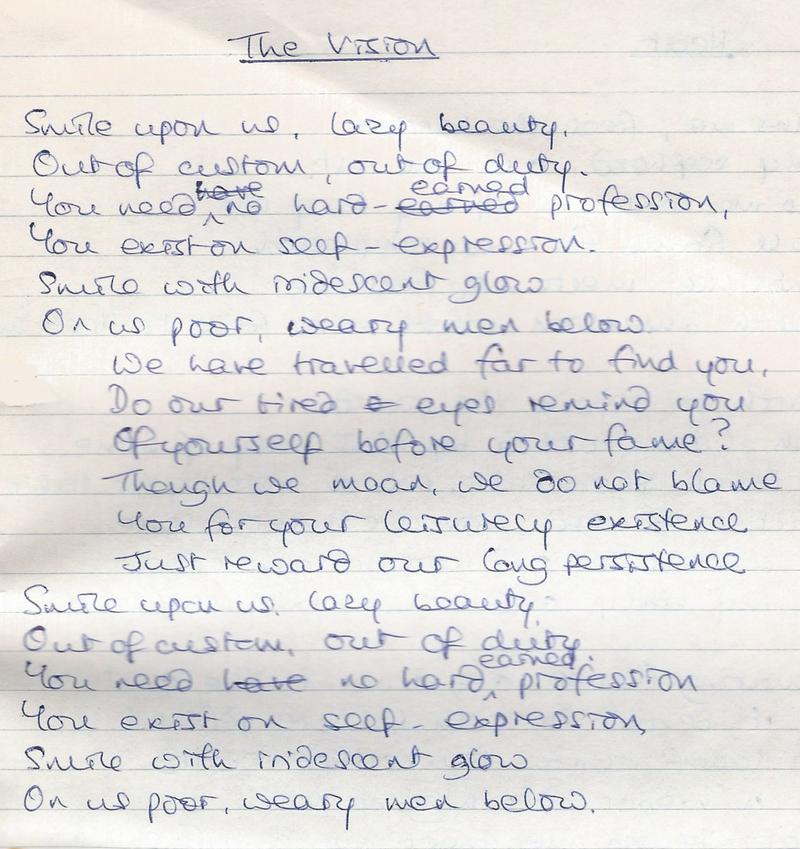 The Vision
Smile upon us, lazy beauty.
Out of custom, out of duty.
You need no hard-earned profession,
You exist on self-expression.
Smile with iridescent glow
On us poor, weary men below.
We have travelled far to find you,
Do our tired eyes remind you
Of yourself before your fame?
Though we moan, we do not blame
You for your leisurely existence
Just reward our long persistence
Smile upon us, lazy beauty.
Out of custom, out of duty.
You need no hard earned profession
You exist on self-expression,
Smile with iridescent glow
On us poor, weary men below.